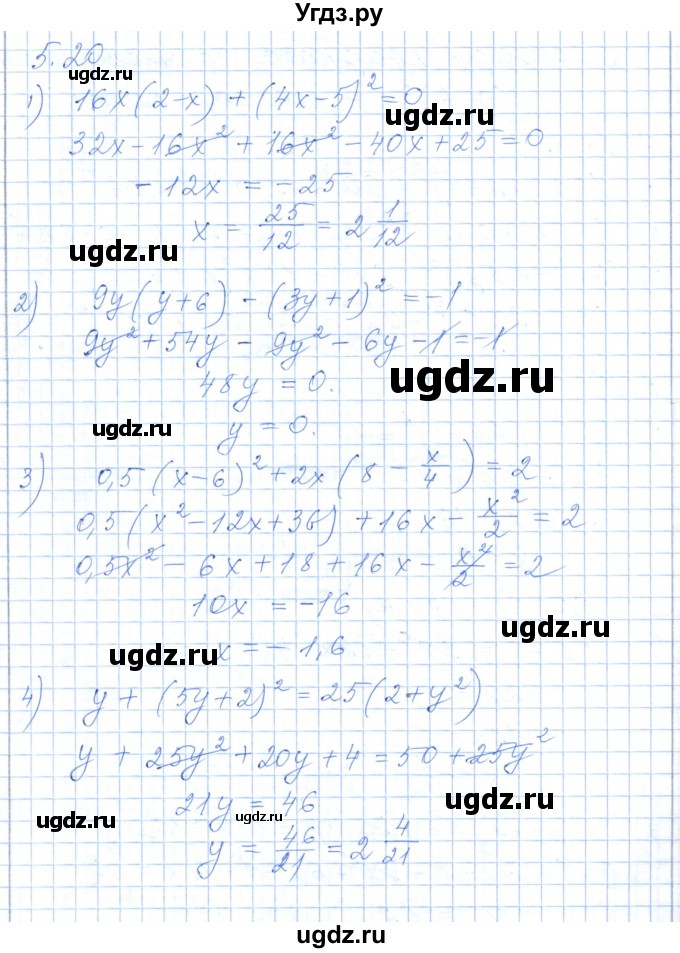 Угдз.ру
5.20
ugdz.ru
1) 16x(2-x) + (4x-5)² = 0
ugdz.ru
32x - 16x² + 16x² - 40x + 25 = 0.
-12x = -25
x = 25/12 = 2 1/12
ugdz.ru
2) 9y(y+6) - (3y+1)² = -1.
9y² + 54y - 9y² - 6y - 1 = -1.
48y = 0.
ugdz.ru
ugdz.ru
y = 0.
3) 0,5(x-6)² + 2x(8 - x/4) = 2.
0,5(x² - 12x + 36) + 16x - x²/2 = 2
0,5x² - 6x + 18 + 16x - x²/2 = 2
10x = -16
ugdz.ru
x = -1,6.
ugdz.ru
4) y + (5y+2)² = 25(2+y²)
y + 25y² + 20y + 4 = 50 + 25y²
21y = 46
ugdz.ru
ugdz.ru
ugdz.ru
y = 46/21 = 2 4/21
ugdz.ru